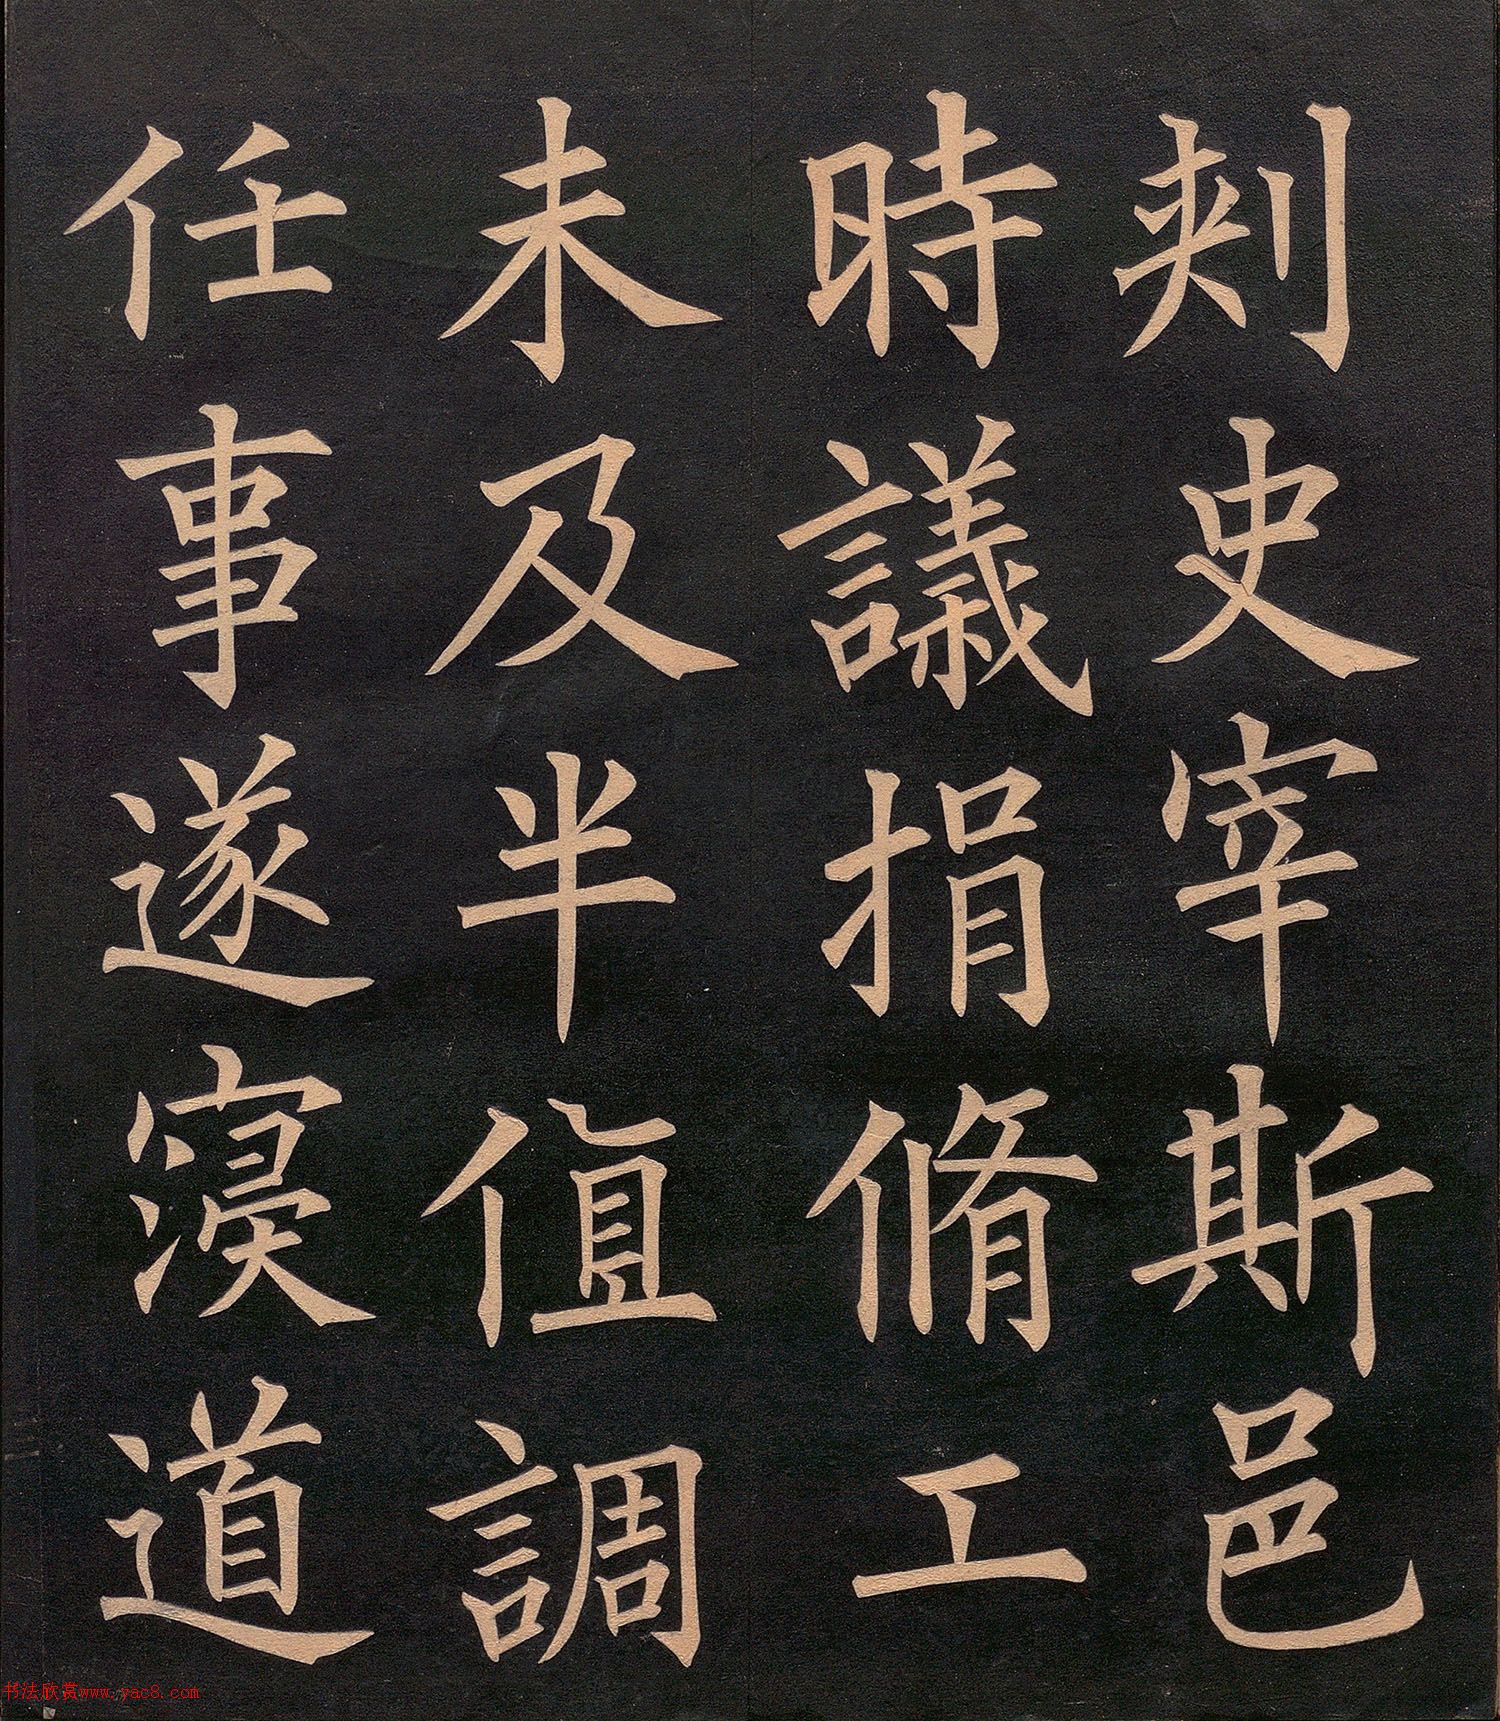 刾史宰斯邑
時議捐脩工
未及半值調
任事遂寝道
书法欣赏www.yac8.com